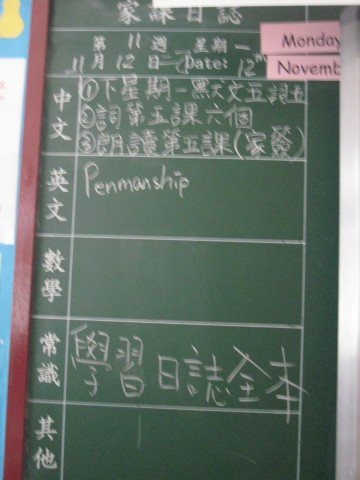 家課日誌
第 11 週 星期一
11月 12 日 Date: 12th
Monday
Novemb
中文
①下星期一默文五詞五
②詞第五課六個
③朗讀第五課(家簽)
英文
Penmanship
數學
常識
學習日誌全本
其他